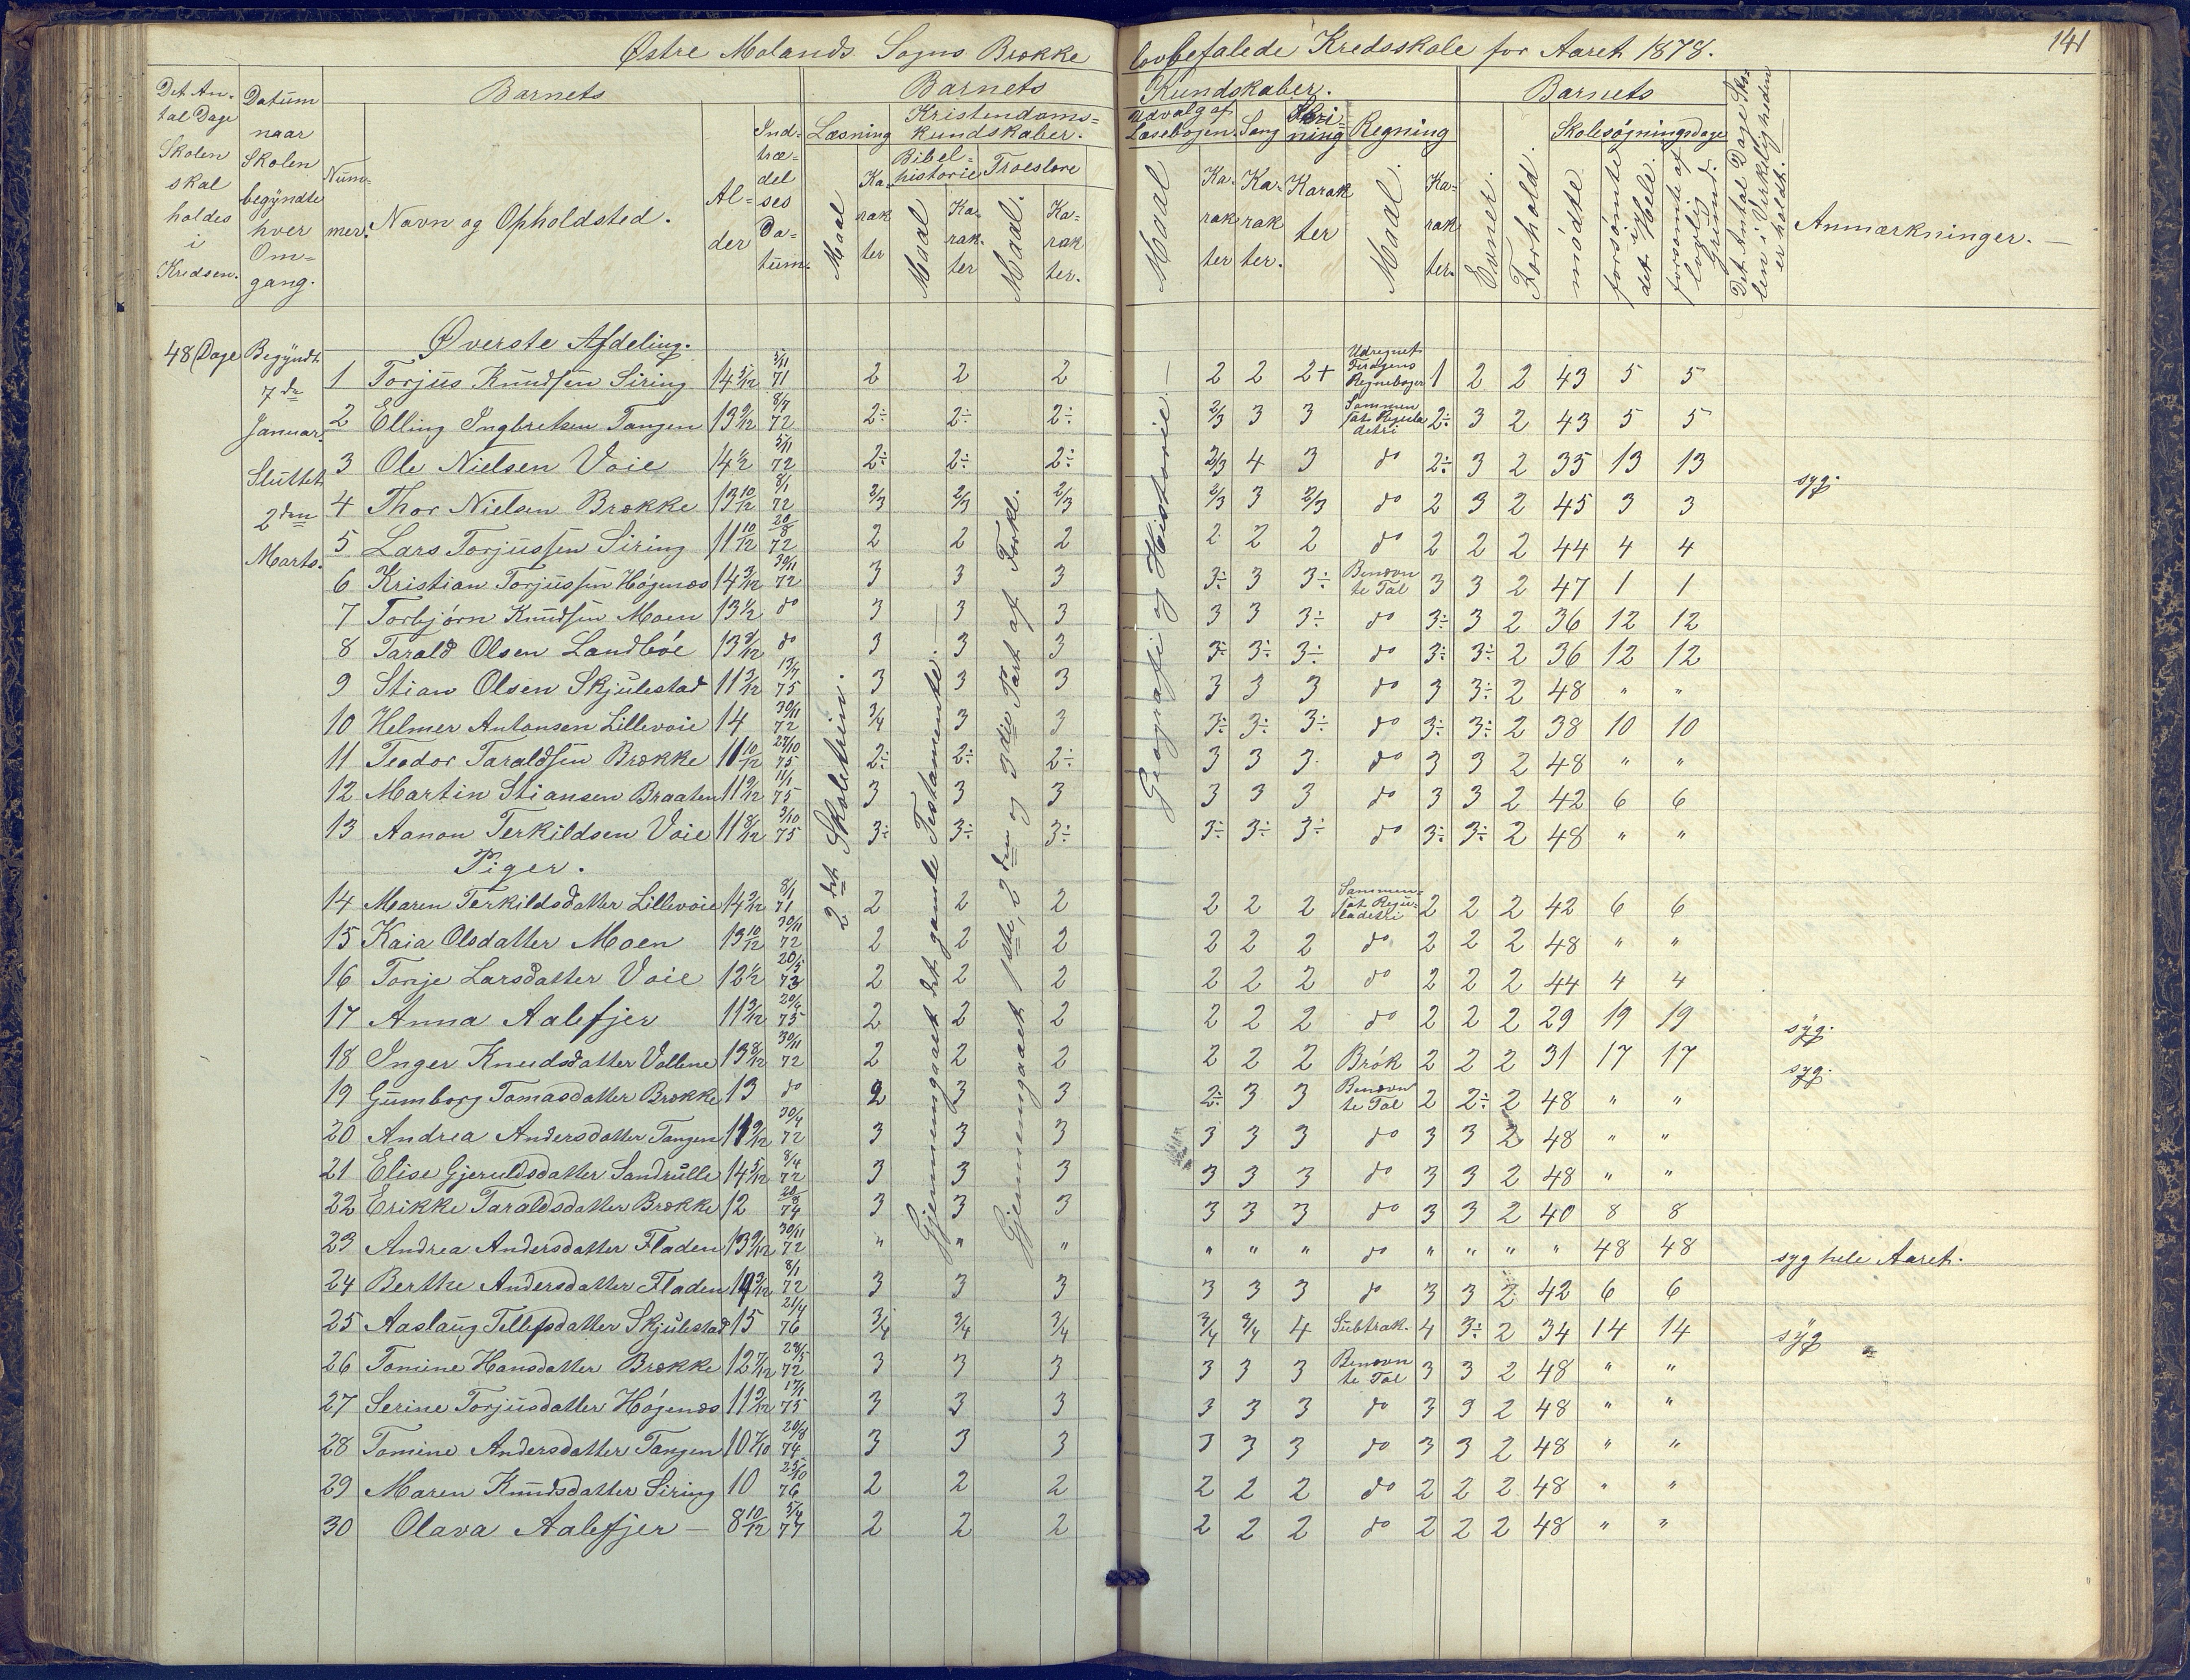 Østre Molands Sogns Brække lovbefalede Kredsskole for Aaret 1878. 141
Det Antal Dage Skolen skal holdes i Kredsen.
Datum naar Skolen begyndte hver Omgang.
Barnets
Nummer. Navn og Opholdsted. Alder Indtrædelses Datum.
Barnets Kundskaber.
Læsning Maal Karakter
Kristendomskundskaber.
Bibelhistorie Maal Karakter
Troeslære Maal. Karakter.
Udvalg af Læsebogen. Maal Karakter
Sang Karakter.
Skrivning Karakter
Regning Maal. Karakter.
Barnets
Evner. Forhold.
Skolesøgningsdage
mødte forsømte i det Hele. forsømte af lovlig Grund.
Det Antal Dage Skolen i Virkeligheden er holdt.
Anmærkninger.
48 Dage
Begyndt 7de Januar. Sluttet 2den Marts.
2det Skoletrin.
Gjennemgaaet det gamle Testamente.
Gjennemgaaet 1ste, 2den og 3die Part af Forkl.
Geografi og Historie
Øverste Afdeling.
1 Torjus Knudsen Siring 14 5/12 5/11 71 2 2 2 2 2 2+ Udregnet Ferdigens Regnebøger 1 2 2 43 5 5
2 Elling Ingbretsen Tangen 13 9/12 8/7 72 2÷ 2÷ 2÷ 2/3 3 3 Sammensat Reguladetri 2÷ 3 2 43 5 5
3 Ole Nielsen Voie 14 1/2 5/11 72 2÷ 2÷ 2÷ 2/3 4 3 do 2÷ 3 2 35 13 13 syg.
4 Thor Nielsen Brække 13 10/12 8/1 72 2/3 2/3 2/3 2/3 3 2/3 do 2 3 2 45 3 3
5 Lars Torjussen Siring 11 10/12 20/8 72 2 2 2 2 2 2 do 2 2 2 44 4 4
6 Kristian Torjussen Høgenæs 14 3/12 30/11 72 3 3 3 3÷ 3 3÷ Benævnte Tal 3 3 2 47 1 1
7 Torbjørn Knudsen Moen 13 1/2 do 3 3 3 3 3 3÷ do 3÷ 3 2 36 12 12
8 Tarald Olsen Landbøe 13 8/12 do 3 3 3 3÷ 3÷ 3÷ do 3÷ 3÷ 2 36 12 12
9 Stian Olsen Skjulestad 11 3/12 13/7 75 3 3 3 3 3 3 do 3 3÷ 2 48 " "
10 Helmer Antonsen Lillevoie 14 30/11 72 3/4 3 3 3÷ 3÷ 3÷ do 3÷ 3÷ 2 38 10 10
11 Teodor Taraldsen Brække 11 10/12 27/10 75 2÷ 2÷ 2÷ 3 3 3 do 3 3 2 48 " "
12 Martin Stiansen Braaten 11 9/12 11/1 75 3 3 3 3 3 3 do 3 3 2 42 6 6
13 Aanon Terkildsen Voie 11 8/12 3/10 75 3÷ 3÷ 3÷ 3÷ 3÷ 3÷ do 3÷ 3÷ 2 48 " "
Piger.
14 Maren Terkildsdatter Lillevoie 14 3/12 8/1 71 2 2 2 2 2 2 Sammensat Reguladetri 2 2 2 42 6 6
15 Kaia Olsdatter Moen 13 10/12 30/11 72 2 2 2 2 2 2 do 2 2 2 48 " "
16 Tonje Larsdatter Voie 12 1/2 20/5 73 2 2 2 2 2 2 do 2 2 2 44 4 4
17 Anna Aalefjer 11 3/12 20/6 75 2 2 2 2 2 2 do 2 2 2 29 19 19 syg.
18 Inger Knudsdatter Vollene 13 8/12 30/11 72 2 2 2 2 2 2 Brøk 2 2 2 31 17 17 syg.
19 Gumborg Tomasdatter Brække 13 do 2 3 3 2÷ 3 3 Benævnte Tal 2 2÷ 2 48 " "
20 Andrea Andersdatter Tangen 30/4 72 3 3 3 3 3 3 do 3 3 2 48 " "
21 Elise Gjeruldsdatter Sandrulle 14 5/12 8/4 72 3 3 3 3 3 3 do 3 3 2 48 " "
22 Erikke Taraldsdatter Brække 12 74 3 3 3 3 3 3 do 3 3 2 40 8 8
23 Andrea Andersdatter Fladen 13 9/12 30/11 72 " " " " " " do " " " " 48 48 syg hele Aaret.
24 Berthe Andersdatter Fladen 8/1 72 3 3 3 3 3 3 do 3 3 2 42 6 6
25 Aaslaug Tellefsdatter Skjulestad 15 21/4 76 3/4 3/4 3/4 3/4 3/4 4 Subtrak. 4 3÷ 2 34 14 14 syg
26 Tomine Hansdatter Brække 12 7/12 28/5 72 3 3 3 3 3 3 Benævnte Tal 3 3 2 48 " "
27 Serine Torjusdatter Høgenæs 11 2/12 17/1 75 3 3 3 3 3 3 do 3 3 2 48 " "
28 Tomine Andersdatter Tangen 10 7/10 20/8 74 3 3 3 3 3 3 do 3 3 2 48 " "
29 Maren Knudsdatter Siring 10 25/10 76 2 2 2 2 2 2 do 2 2 2 48 " "
30 Olava Aalefjer 8 10/12 5/4 77 2 2 2 2 2 2 do 2 2 2 48 " "